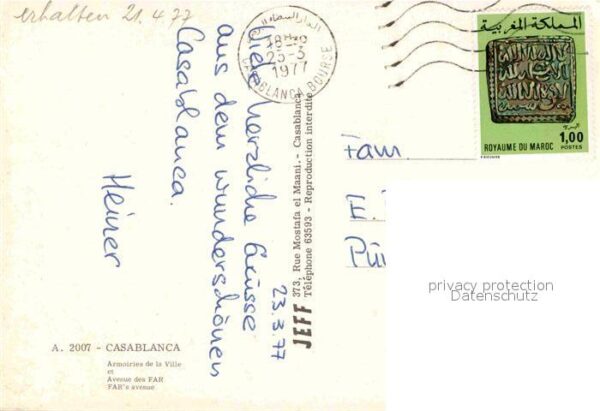 erhalten 21.4.77
23.3.77
Viele herzliche Grüsse
aus dem wunderschönen
Casablanca.
Heiner
A. 2007 - CASABLANCA
Armoiries de la Ville
et
Avenue des FAR
FAR's avenue
JEFF
373, Rue Mostafa el Maani. - Casablanca
Téléphone 63593 - Reproduction interdite
الدار البيضاء
25-3
1977
CASABLANCA BOURSE
المملكة المغربية
1,00
البريد
POSTES
ROYAUME DU MAROC
Fam.
privacy protection
Datenschutz